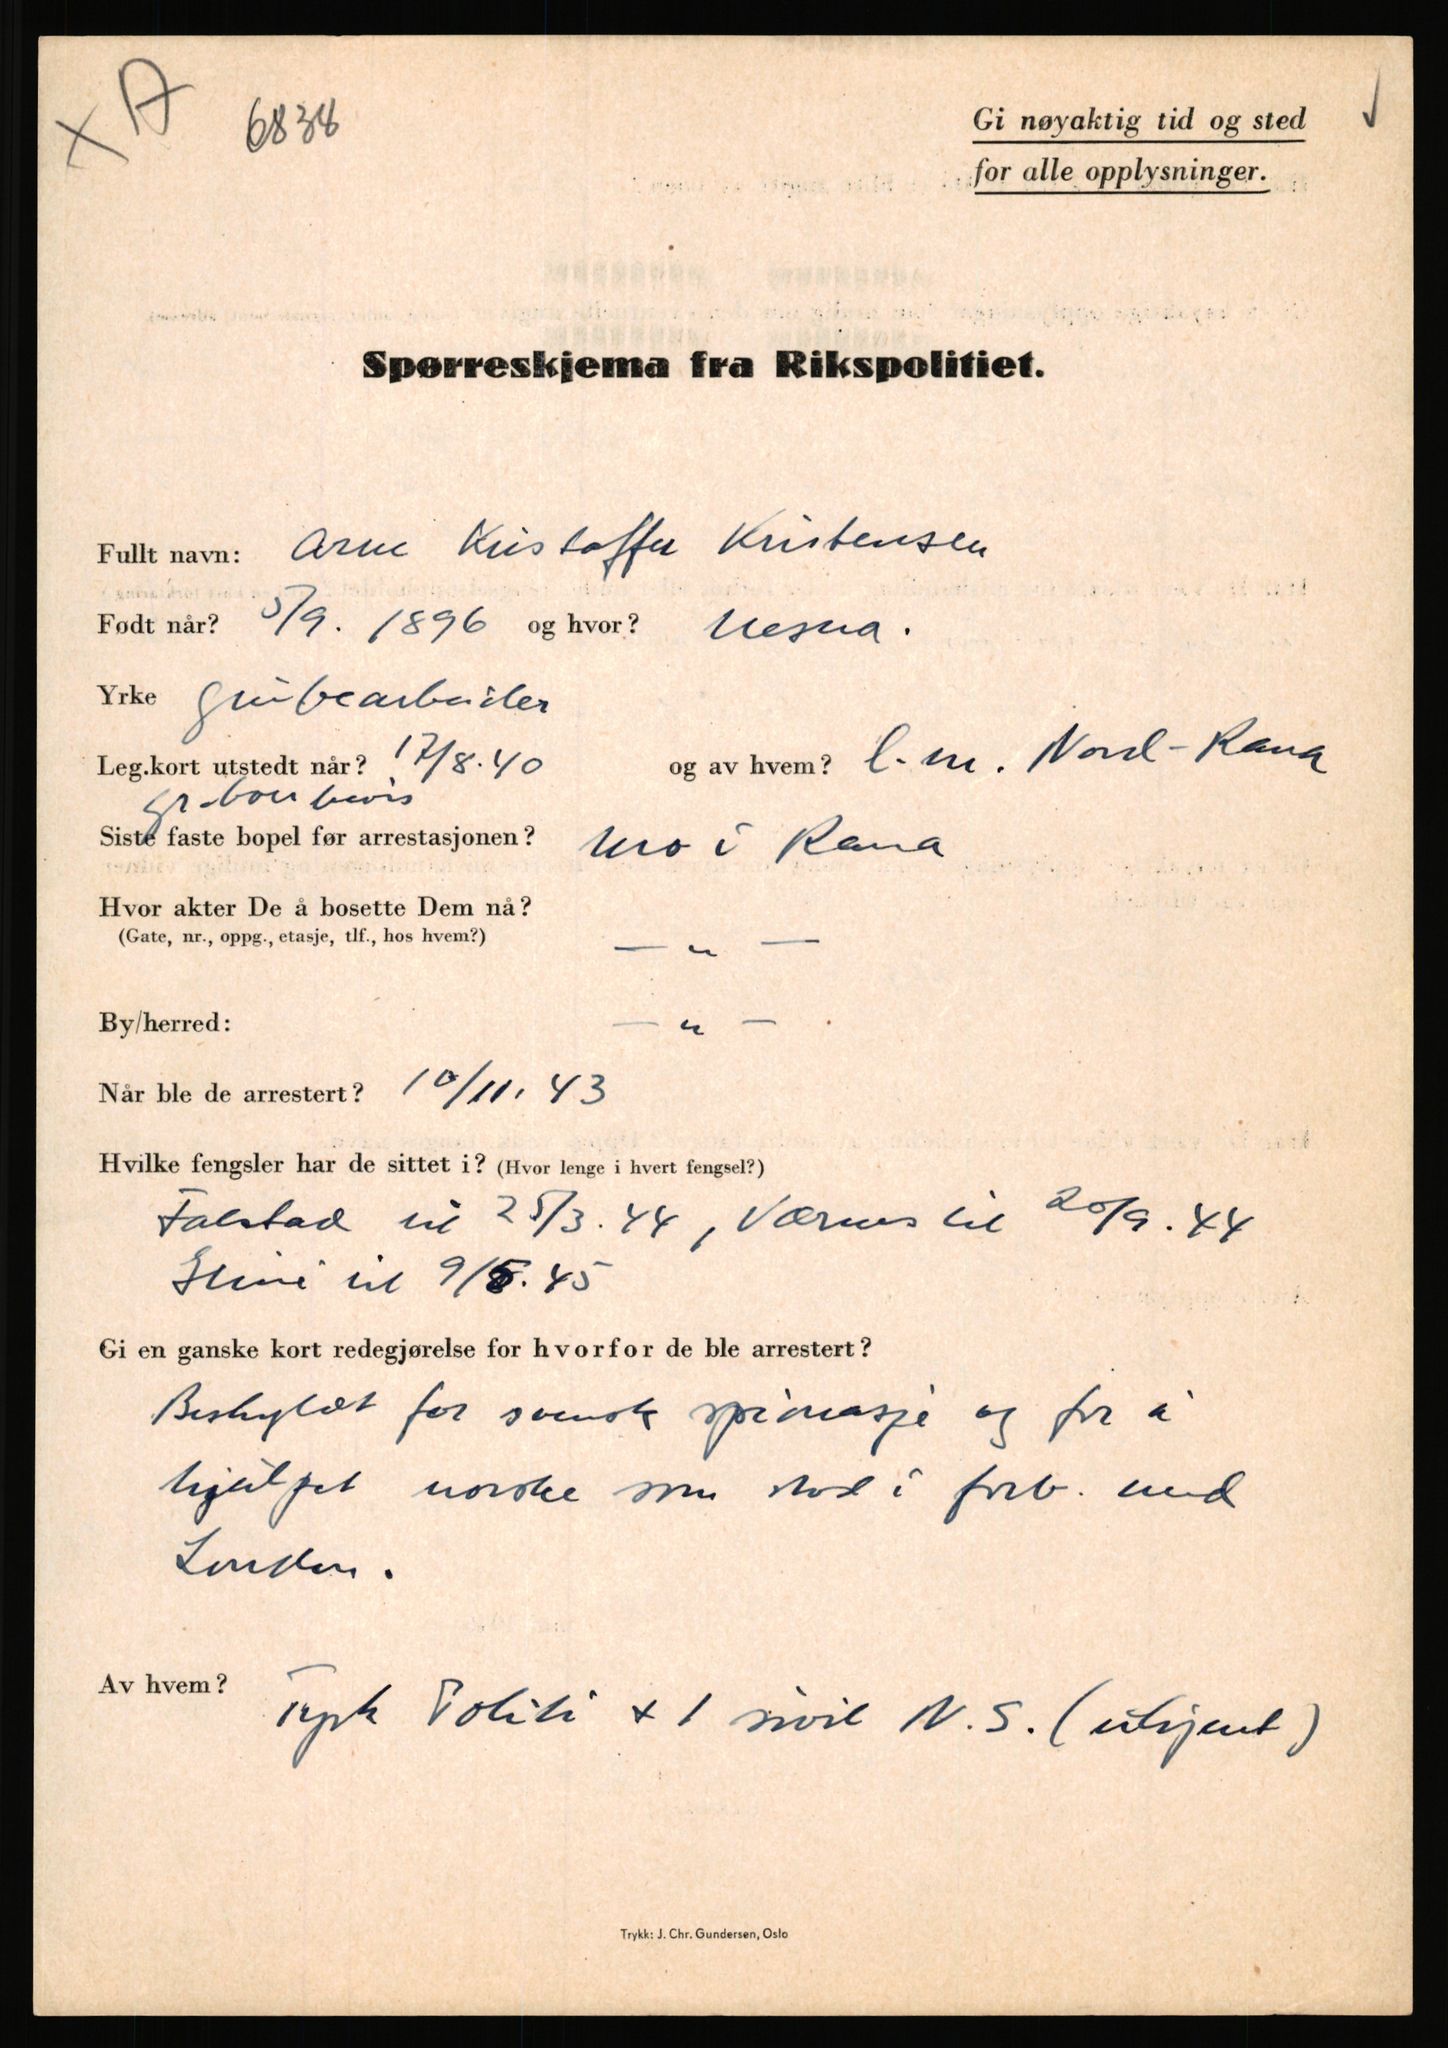 x A 6838
Gi nøyaktig tid og sted
for alle opplysninger.
Spørreskjema fra Rikspolitiet.
Fullt navn: Arne Kristoffer Kristensen
Født når? 5/9. 1896 og hvor? Nesna.
Yrke Grubearbeider
Leg.kort utstedt når? 17/8.40 og av hvem? l.m. Nord-Rana
gr.boerbevis
Siste faste bopel før arrestasjonen? Mo i Rana
Hvor akter De å bosette Dem nå?
(Gate, nr., oppg., etasje, tlf., hos hvem?) — " —
By/herred: — " —
Når ble de arrestert? 10/11. 43
Hvilke fengsler har de sittet i? (Hvor lenge i hvert fengsel?)
Falstad til 25/3.44, Værnes til 20/9.44
Grini til 9/5.45
Gi en ganske kort redegjørelse for hvorfor de ble arrestert?
Beskyldt for svensk spionasje og for å
hjulpet norske som stod i forb. med
London.
Av hvem? Tysk Politi + 1 sivil N.S. (ukjent)
Trykk: J. Chr. Gundersen, Oslo